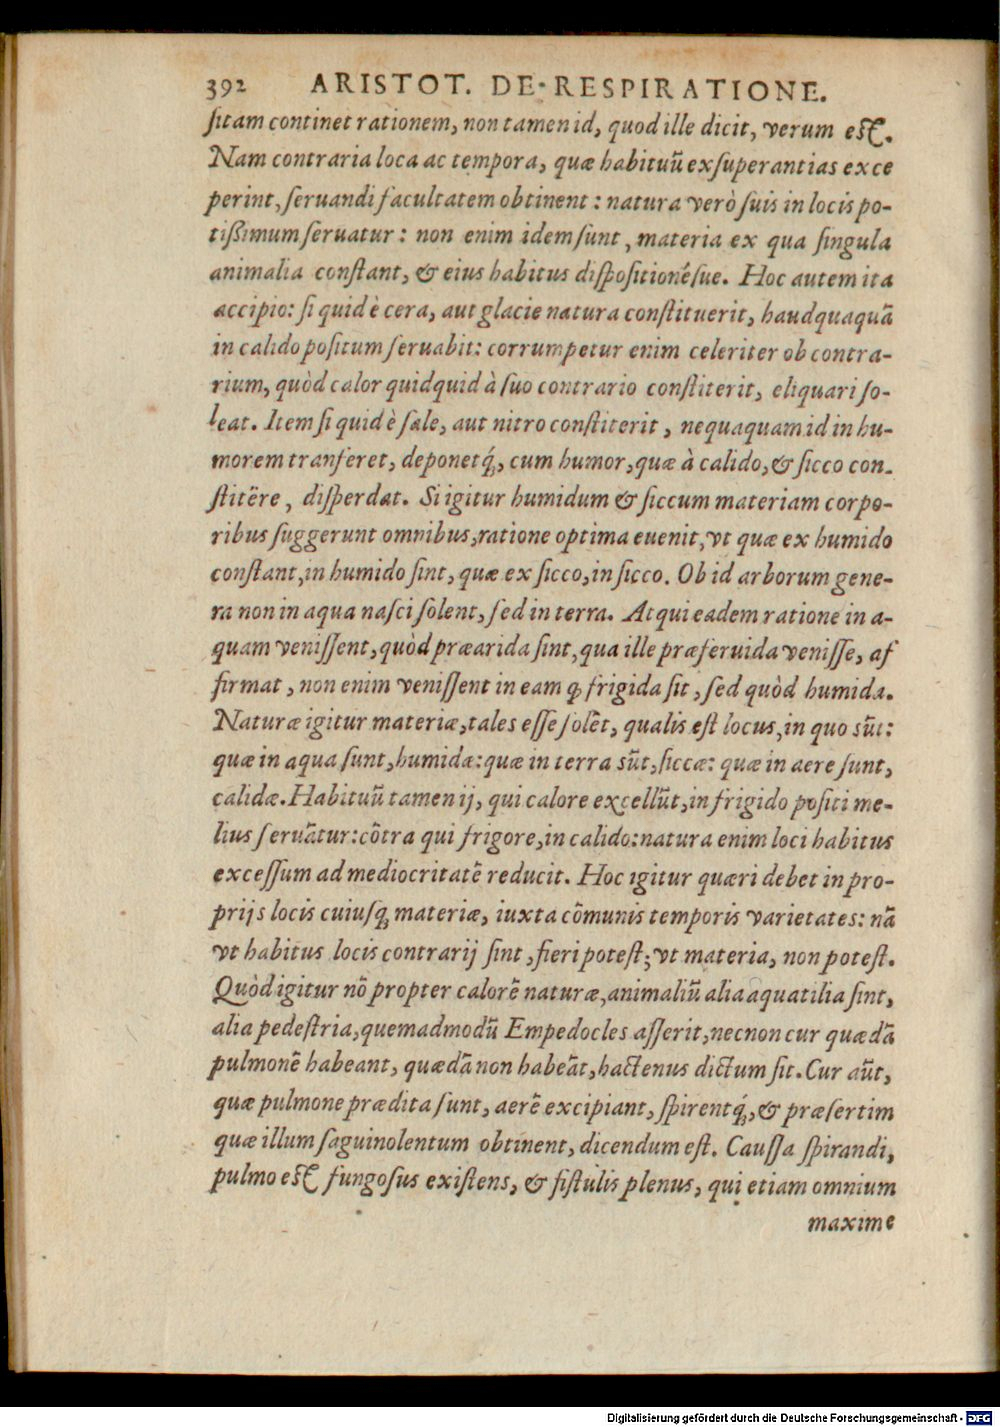 392 ARISTOT. DE RESPIRATIONE.
ſitam continet rationem, non tamen id, quod ille dicit, verum eſt.
Nam contraria loca ac tempora, quæ habituũ exſuperantias exce
perint, ſeruandi facultatem obtinent: natura verò ſuis in locis po-
tißimum ſeruatur: non enim idem ſunt, materia ex qua ſingula
animalia conſtant, & eius habitus diſpoſitionéſue. Hoc autem ita
accipio: ſi quid è cera, aut glacie natura conſtituerit, haudquaquã
in calido poſitum ſeruabit: corrumpetur enim celeriter ob contra-
rium, quòd calor quidquid à ſuo contrario conſtiterit, eliquari ſo-
leat. Item ſi quid è ſale, aut nitro conſtiterit, nequaquam id in hu-
morem tranferet, deponetq́;, cum humor, quæ à calido, & ſicco con-
ſtitêre, diſperdat. Si igitur humidum & ſiccum materiam corpo-
ribus ſuggerunt omnibus, ratione optima euenit, vt quæ ex humido
conſtant, in humido ſint, quæ ex ſicco, in ſicco. Ob id arborum gene-
ra non in aqua naſci ſolent, ſed in terra. Atqui eadem ratione in a-
quam veniſſent, quòd præarida ſint, qua ille præferuida veniſſe, af
firmat, non enim veniſſent in eam ꝙ frigida ſit, ſed quòd humida.
Naturæ igitur materiæ, tales eſſe ſolẽt, qualis eſt locus, in quo sũt:
quæ in aqua ſunt, humidæ: quæ in terra sũt, ſiccæ: quæ in aere ſunt,
calidæ. Habituũ tamen ij, qui calore excellũt, in frigido poſiti me-
lius ſeruãtur: cõtra qui frigore, in calido: natura enim loci habitus
exceſſum ad mediocritatẽ reducit. Hoc igitur quæri debet in pro-
prijs locis cuiuſq; materiæ, iuxta cõmunis temporis varietates: nã
vt habitus locis contrarij ſint, fieri poteſt; vt materia, non poteſt.
Quòd igitur nõ propter calorẽ naturæ, animaliũ alia aquatilia ſint,
alia pedeſtria, quemadmodũ Empedocles aſſerit, necnon cur quædã
pulmonẽ habeant, quædã non habeãt, hactenus dictum ſit. Cur aũt,
quæ pulmone prædita ſunt, aerẽ excipiant, ſpirentq́;, & præſertim
quæ illum ſaguinolentum obtinent, dicendum eſt. Cauſſa ſpirandi,
pulmo eſt fungoſus exiſtens, & fiſtulis plenus, qui etiam omnium
maxime
Digitalisierung gefördert durch die Deutsche Forschungsgemeinschaft - DFG